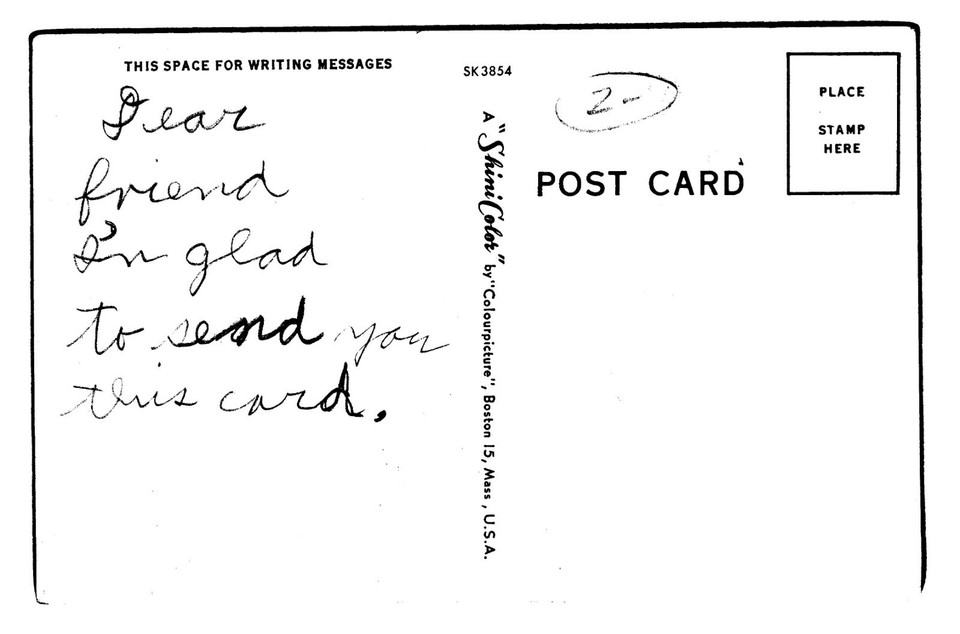 THIS SPACE FOR WRITING MESSAGES
Dear
friend
I'm glad
to send you
this card.
SK3854
A "ShiniColor" by "Colourpicture", Boston 15, Mass., U.S.A.
2-
POST CARD
PLACE
STAMP
HERE